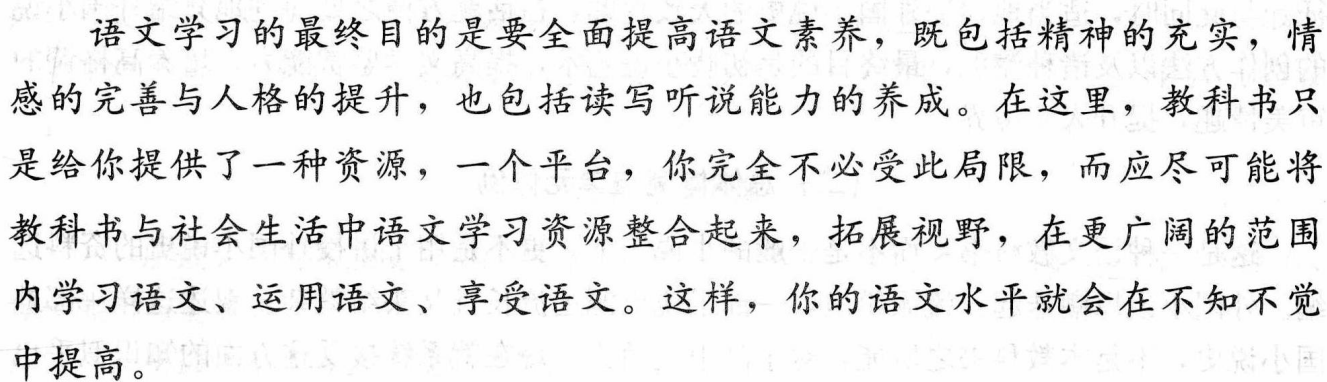 语文学习的最终目的是要全面提高语文素养，既包括精神的充实，情
感的完善与人格的提升，也包括读写听说能力的养成。在这里，教科书只
是给你提供了一种资源，一个平台，你完全不必受此局限，而应尽可能将
教科书与社会生活中语文学习资源整合起来，拓展视野，在更广阔的范围
内学习语文、运用语文、享受语文。这样，你的语文水平就会在不知不觉
中提高。